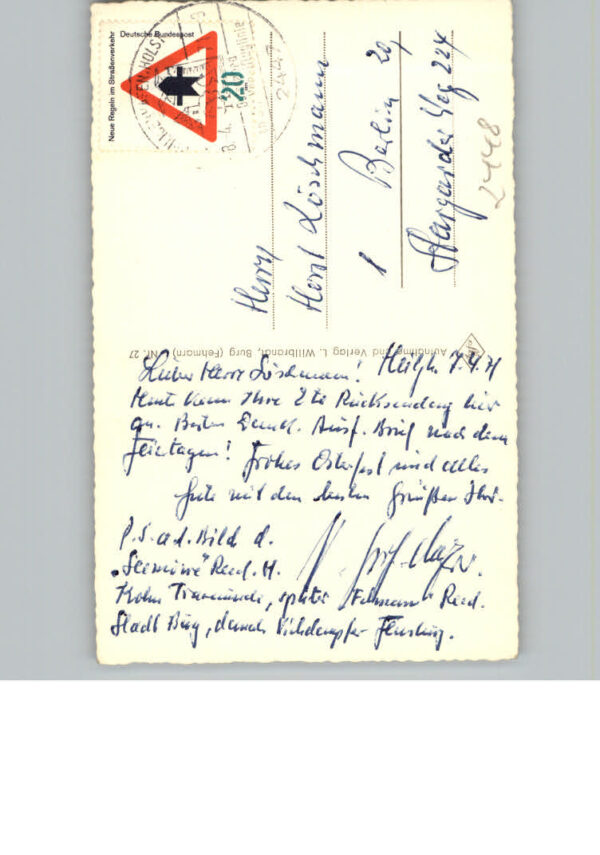 Deutsche Bundespost
Neue Regeln im Straßenverkehr
20
2447
Herrn
Horst Löschmann
1 Berlin 20
Weg 224
2448
Aufnahme und Verlag L. Willbrandt, Burg (Fehmarn) Nr. 27
Lieber Herr Löschmann! 7.4.71
Heute kam Ihre 2te Rücksendung hier
an. Besten Dank. Ausf. Brief nach den
Feiertagen! Frohes Osterfest und alles
Gute mit den besten Grüßen Ihr
P.S. a.d. Bild d.
Reed. H.
Travemünde, später „Fehmarn“ Reed.
Stadt Burg, danach Flensburg.